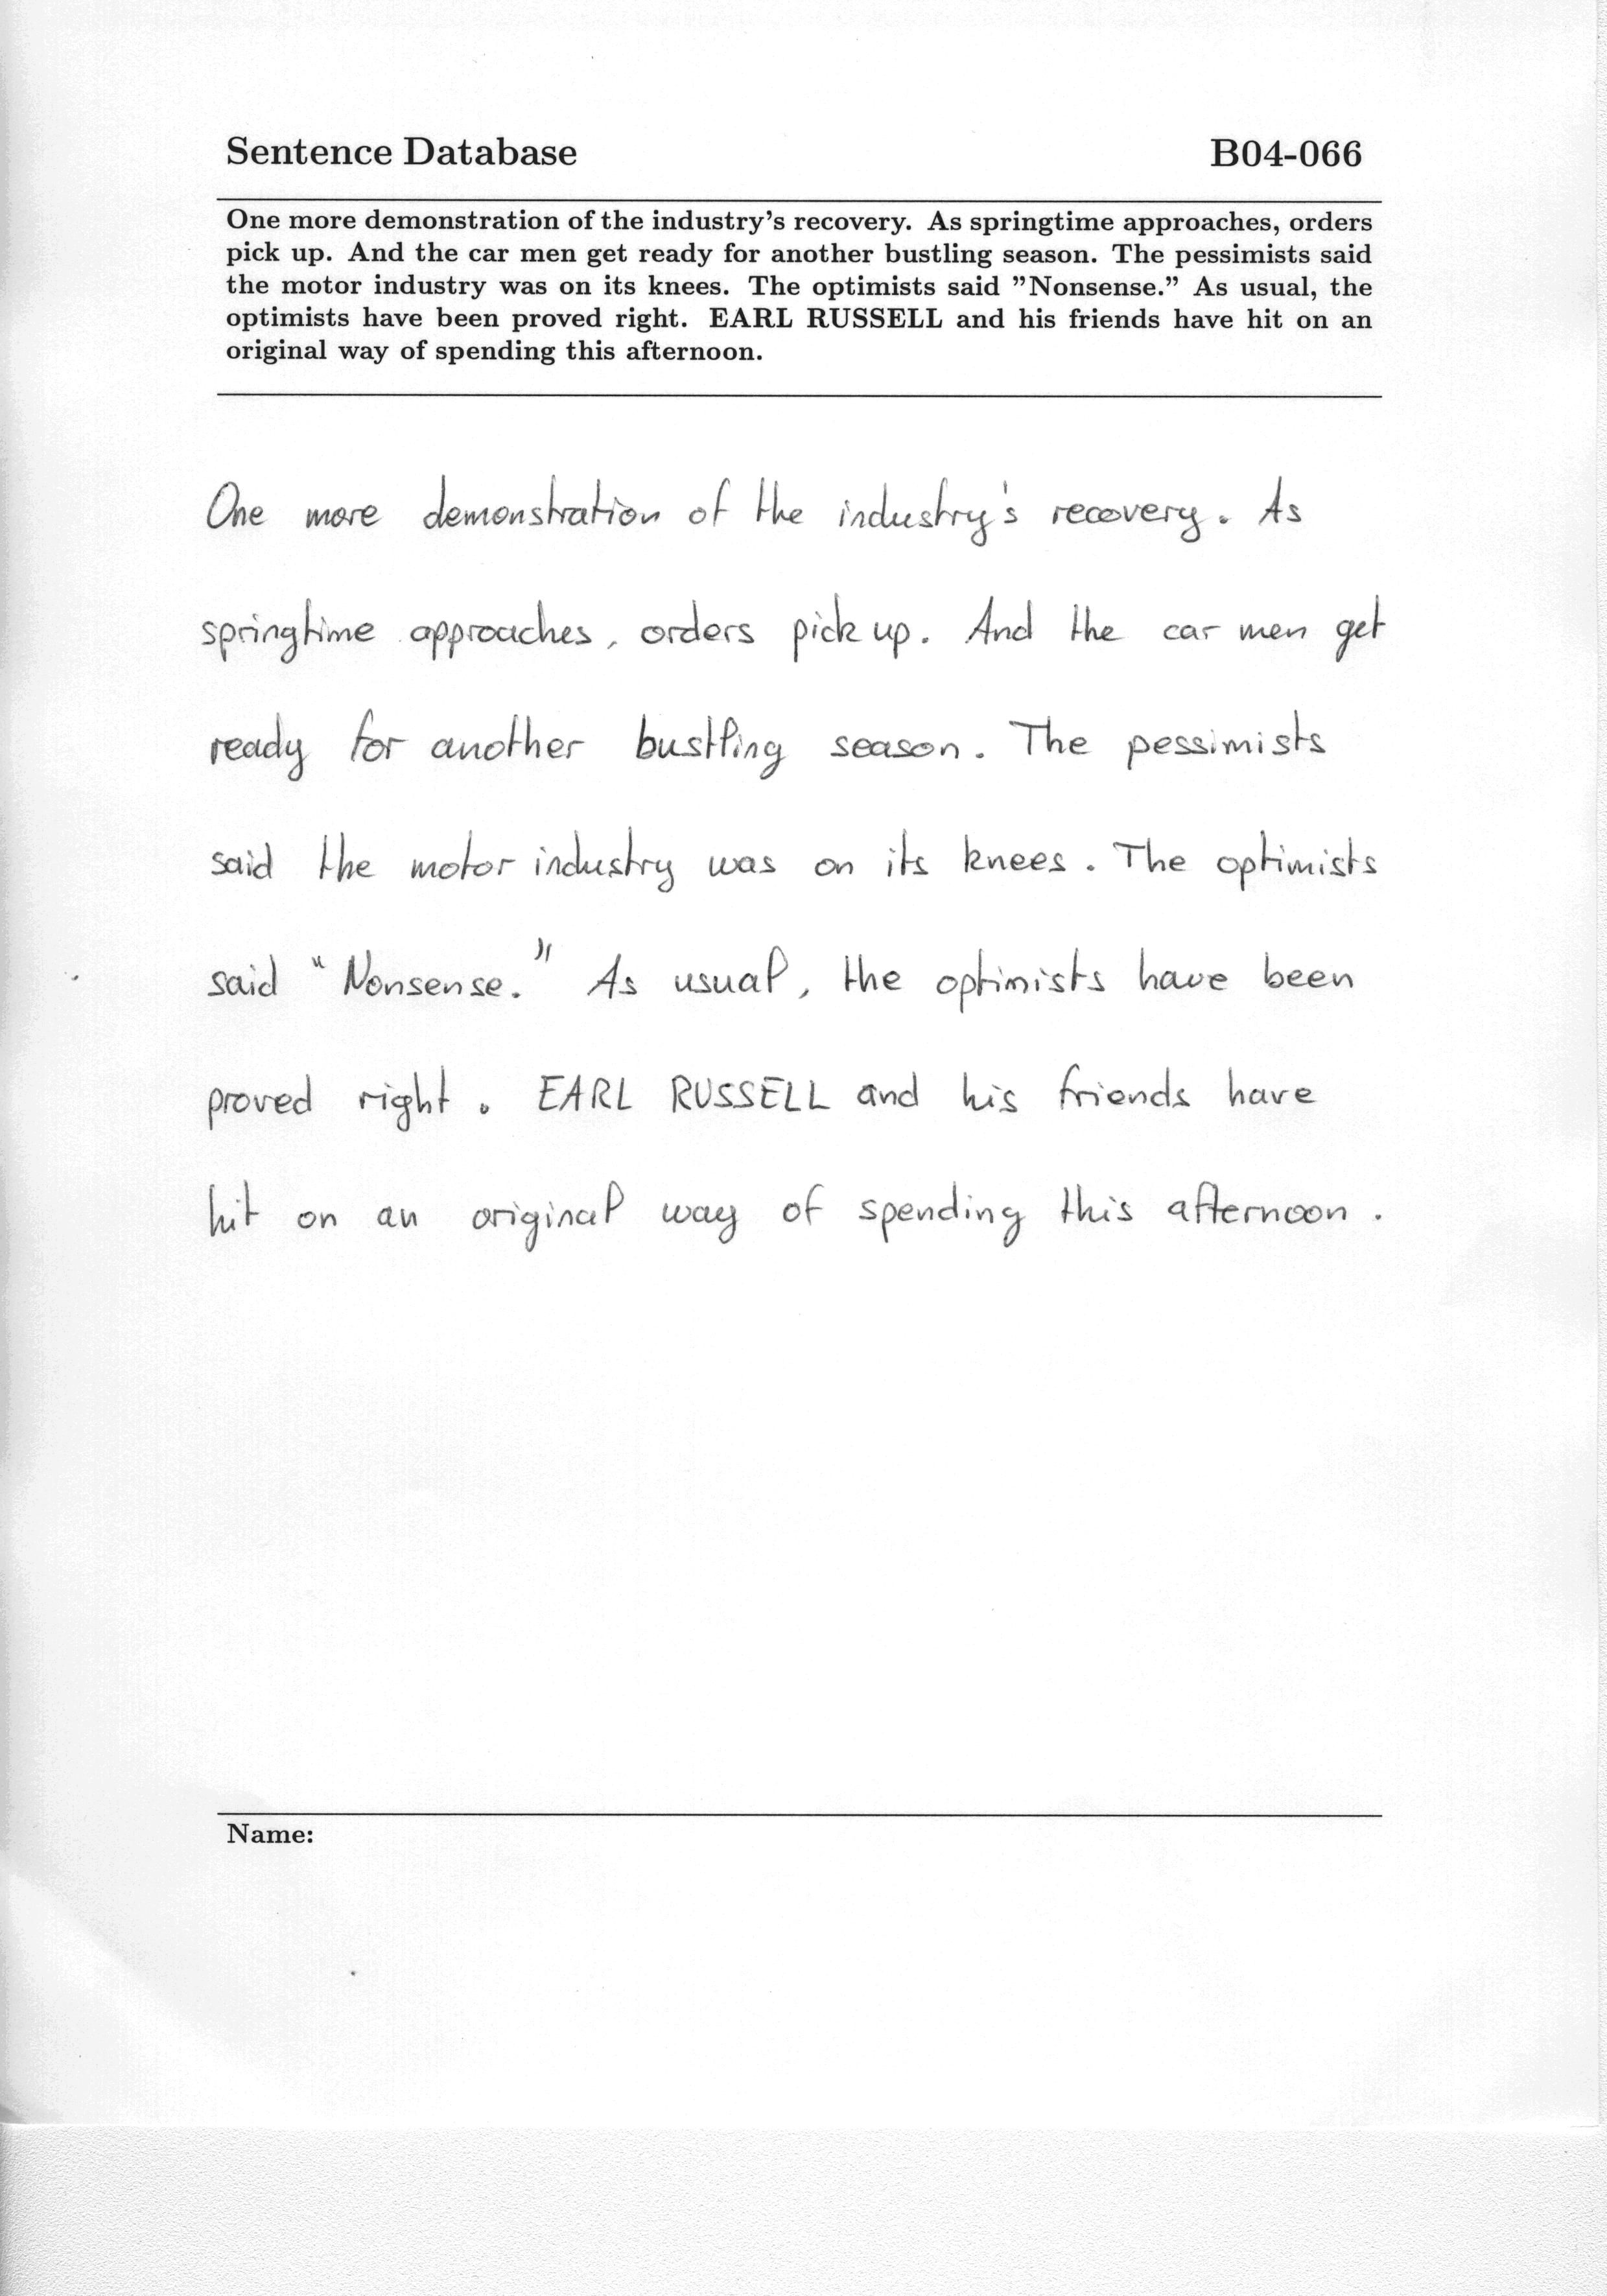 Sentence Database B04-066
One more demonstration of the industry's recovery. As springtime approaches, orders
pick up. And the car men get ready for another bustling season. The pessimists said
the motor industry was on its knees. The optimists said ”Nonsense.” As usual, the
optimists have been proved right. EARL RUSSELL and his friends have hit on an
original way of spending this afternoon.
One more demonstration of the industry's recovery. As
springtime approaches, orders pick up. And the car men get
ready for another bustling season. The pessimists
said the motor industry was on its knees. The optimists
said "Nonsense." As usual, the optimists have been
proved right. EARL RUSSELL and his friends have
hit on an original way of spending this afternoon.
Name: